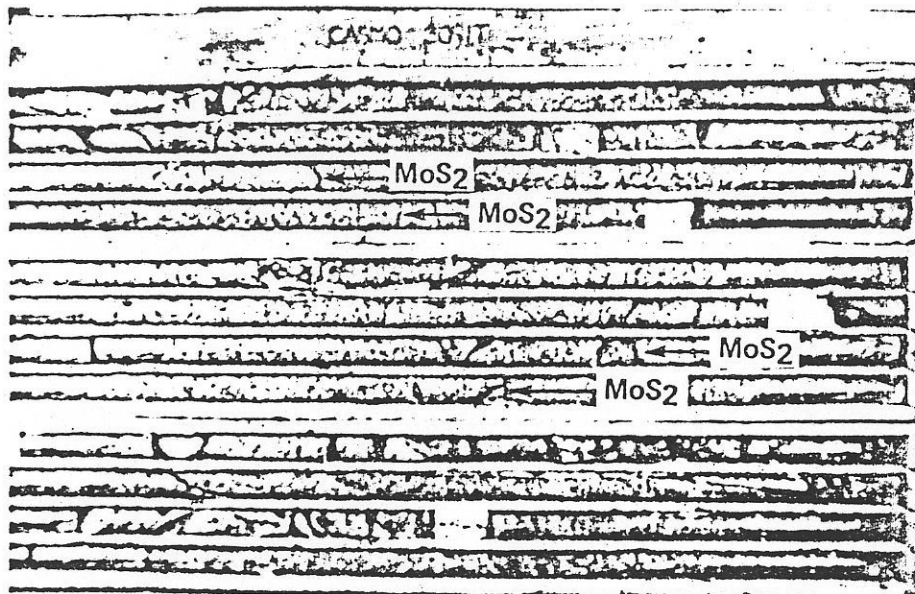 MoS2
MoS2
MoS2
MoS2